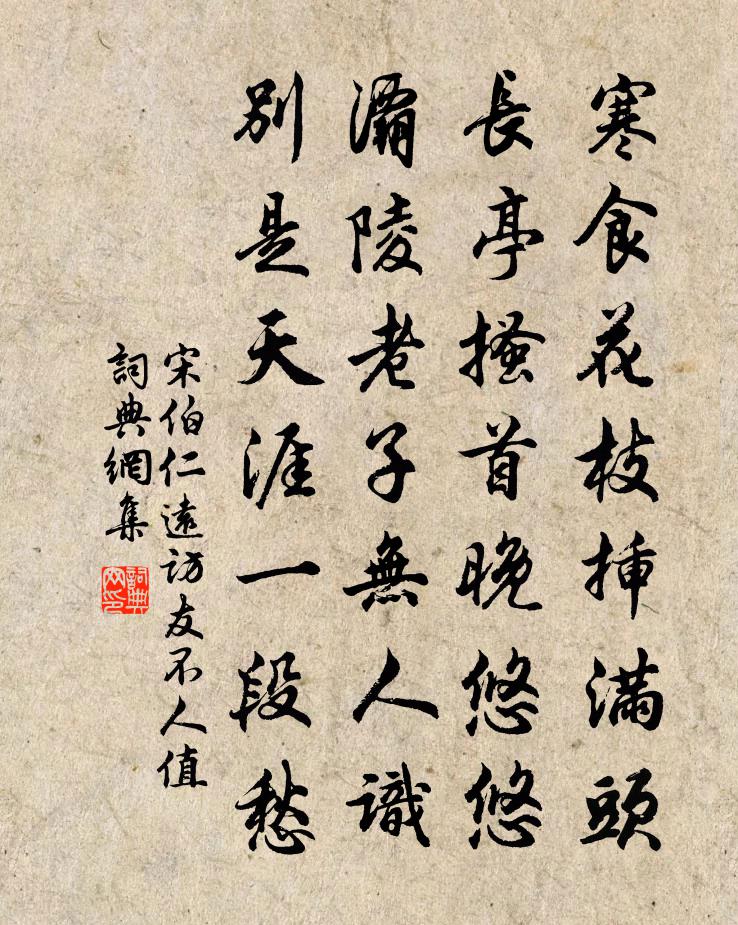 寒食花枝插滿頭
長亭搔首晚悠悠
灞陵老子無人識
別是天涯一段愁
宋伯仁遠訪友不人值
詞典網集
詞典網印